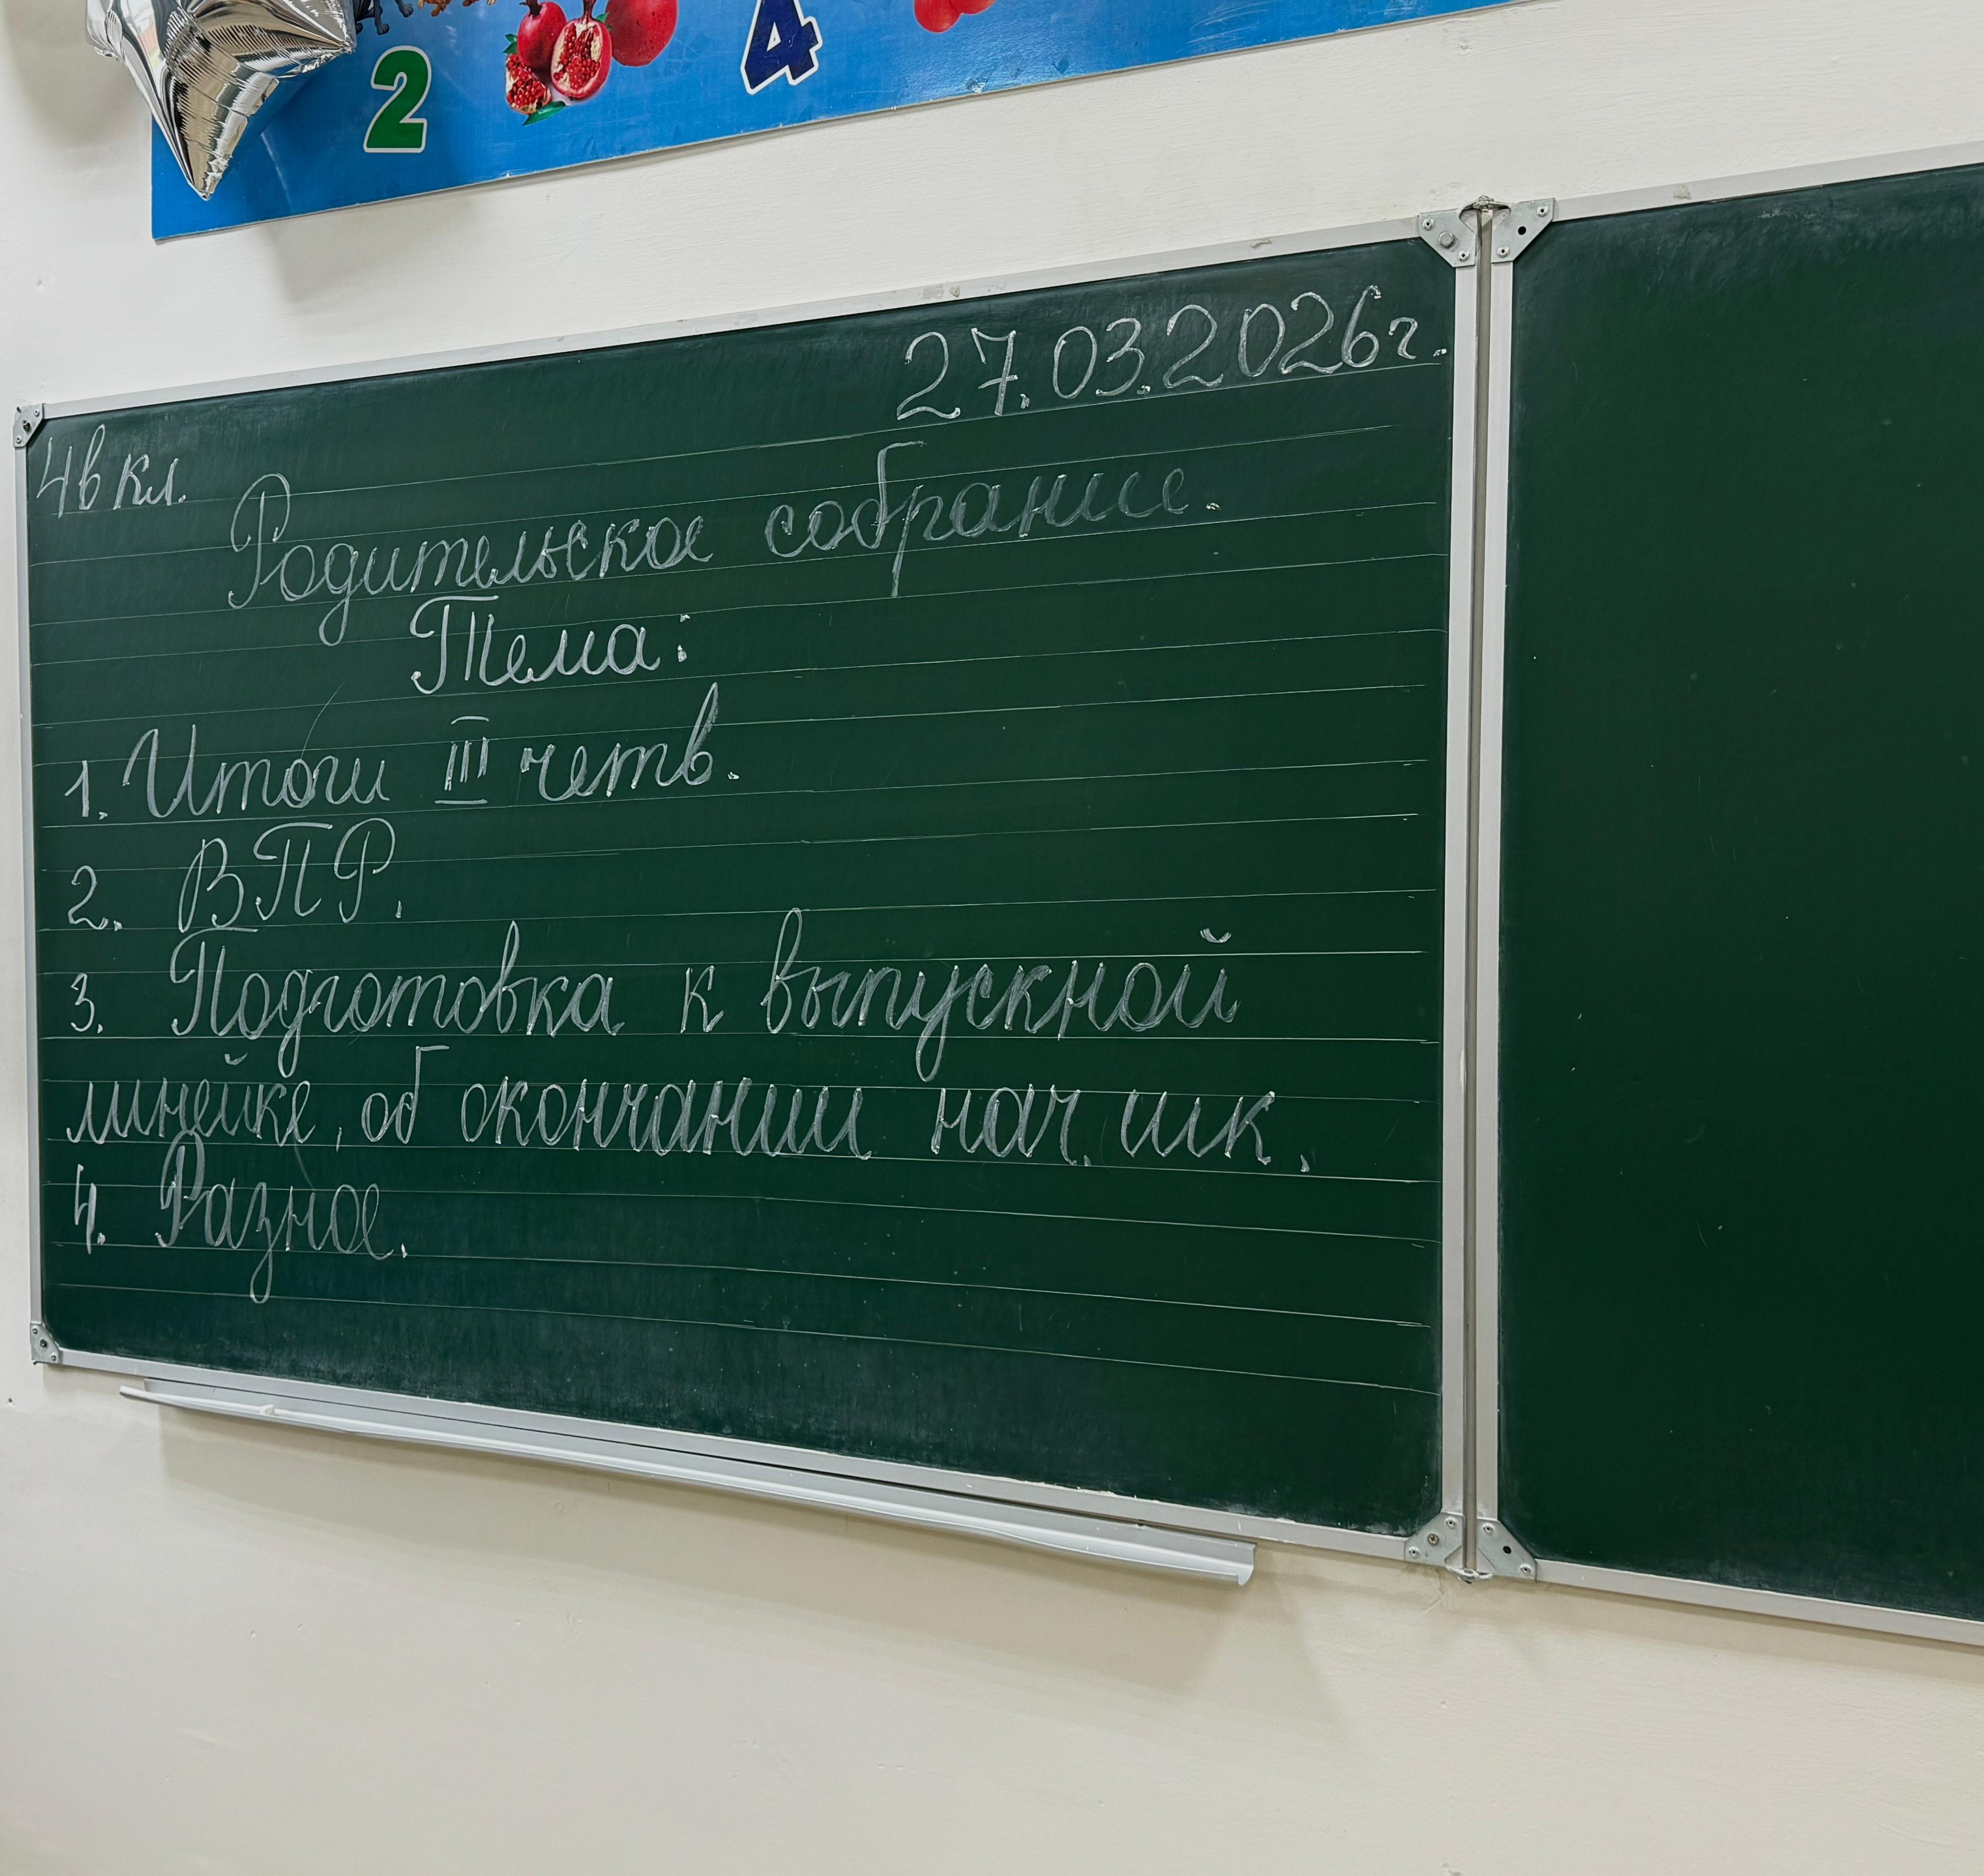 2 4
27.03.2026г.
4в кл.
Родительское собрание.
Тема:
1. Итоги III четв.
2. ВПР.
3. Подготовка к выпускной
линейке, об окончании нач. шк.
4. Разное.